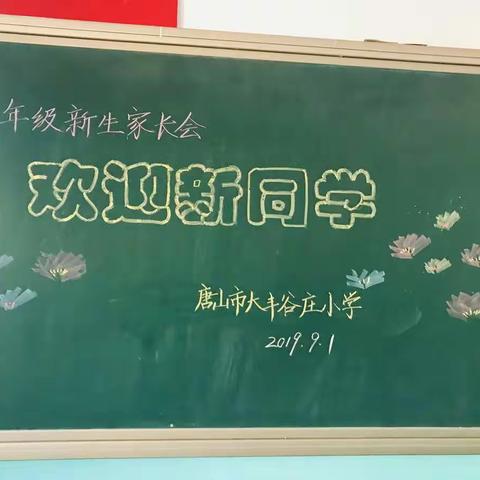 年级新生家长会
欢迎新同学
唐山市大丰谷庄小学
2019.9.1